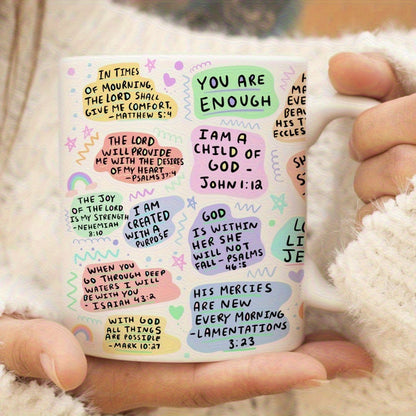 IN TIMES
OF MOURNING,
THE LORD SHALL
GIVE ME COMFORT.
- MATTHEW 5:4
YOU ARE
ENOUGH
THE LORD
WILL PROVIDE
ME WITH THE DESIRES
OF MY HEART
- PSALMS 37:4
I AM A
CHILD OF
GOD -
JOHN 1:12
THE JOY
OF THE LORD
IS MY STRENGTH
- NEHEMIAH
8:10
I AM
CREATED
WITH A
PURPOSE
GOD
IS WITHIN
HER SHE
WILL NOT
FALL - PSALMS
46:5
WHEN YOU
GO THROUGH DEEP
WATERS I WILL
BE WITH YOU
- ISAIAH 43:2
HIS MERCIES
ARE NEW
EVERY MORNING
- LAMENTATIONS
3:23
WITH GOD
ALL THINGS
ARE POSSIBLE
- MARK 10:27
H
MA
EVE
BEA
HIS T
ECCLES
S